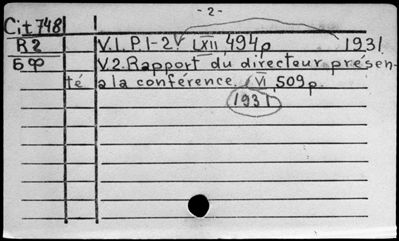 - 2 -
Cit 748
R2 V.1.P.1-2. LXII, 494p 1931
БФ V.2. Rapport du directeur présen-
té a la conférence. VI, 509p.
1931